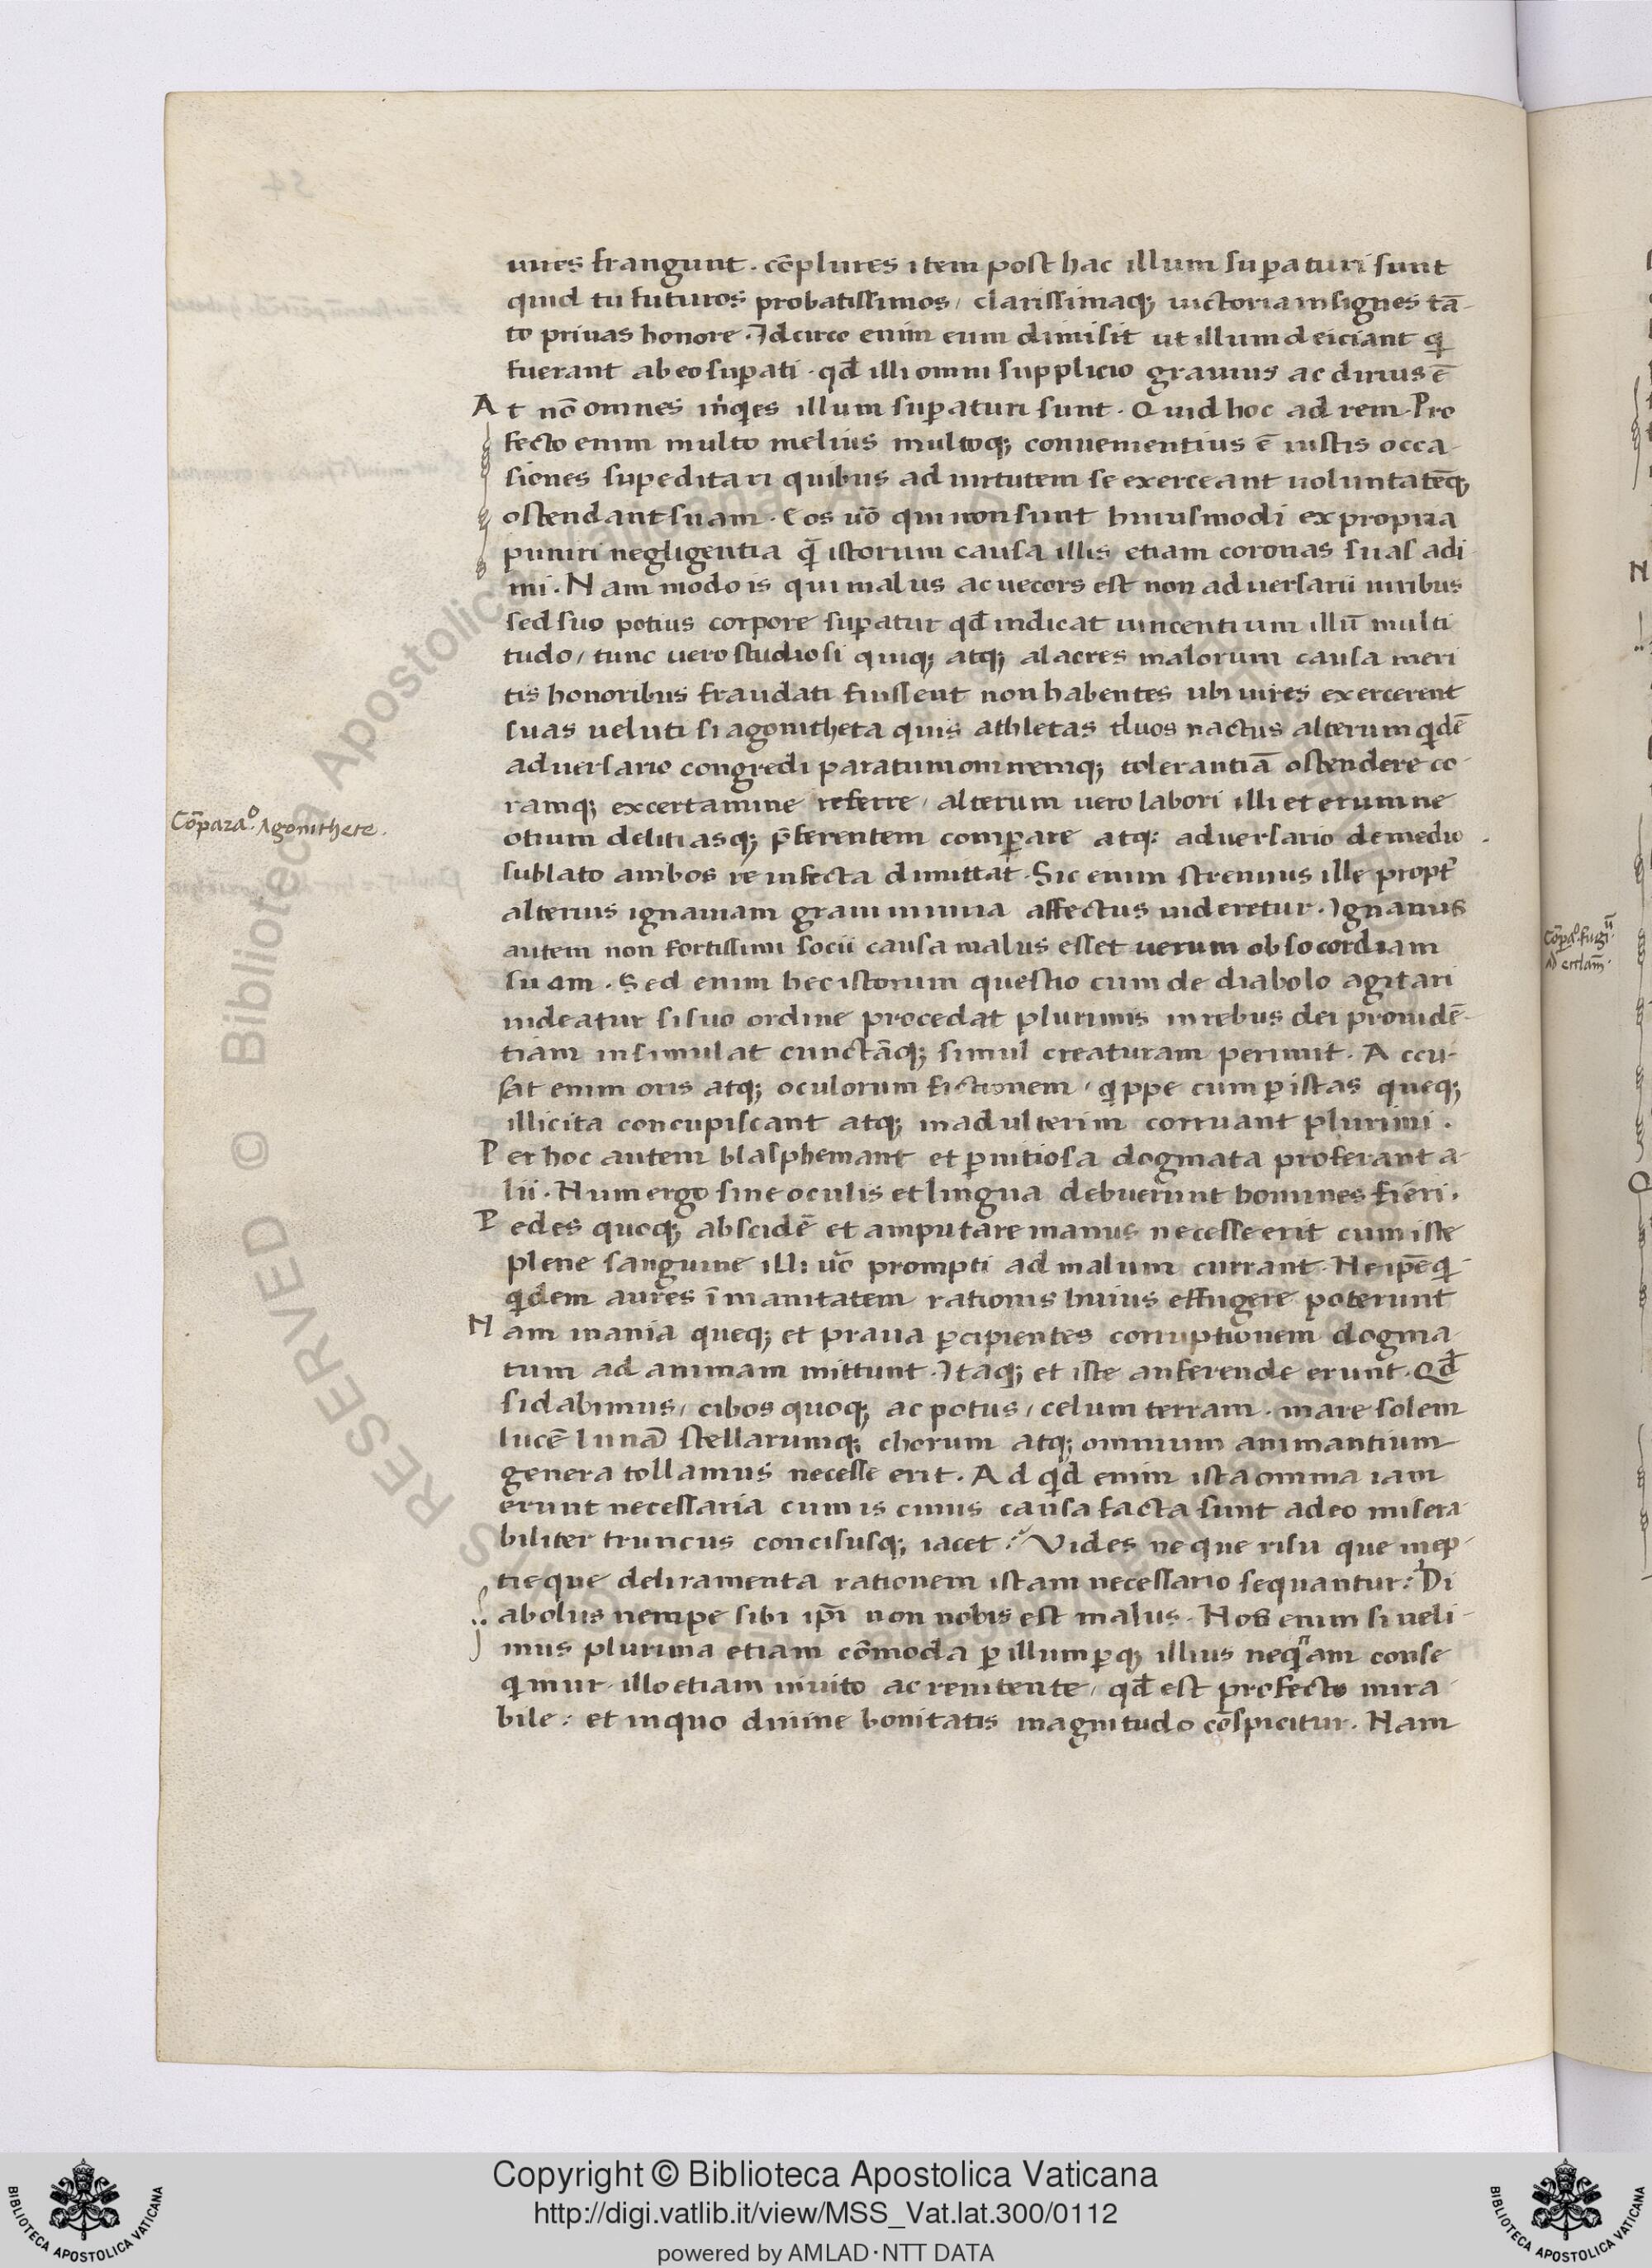 uires frangunt. cōplures item post hac illum suꝑaturi sunt
quid tu futuros probatissimos, clarissimaqꝫ uictoria insignes tā-
to priuas honore. Idcirco enim eum dimisit ut illum deiciant qi
fuerant ab eo suꝑati. qđ illi omni supplicio grauius ac dirius ē
At nō omnes inqies illum suꝑaturi sunt. Quid hoc ad rem. Pro
fecto enim multo melius multoqꝫ conuenientius ē iustis occa-
siones supeditari quibus ad uirtutem se exerceant uoluntatēqꝫ
ostendant suam. Eos uō qui non sunt huiusmodi ex propria
puniri negligentia q̄ istorum causa illis etiam coronas suas adi-
mi. Nam modo is qui malus ac uecors est non aduersarii uiribus
sed suo potius corpore suꝑatur qđ indicat uincentium illū multi
tudo, tunc uero studiosi quiqꝫ atqꝫ alacres malorum causa meri
tis honoribus fraudati fuissent non habentes ubi uires exercerent
suas ueluti si agonitheta quis athletas duos nactus alterum qidē
aduersario congredi paratum omnemqꝫ tolerantiā ostendere co-
ramqꝫ excertamine referre, alterum uero labori illi et erumne
Cōparaº. Agonithete.
otium delitiasqꝫ p̄ferentem comꝑare atqꝫ aduersario de medio
sublato ambos re infecta dimittat. Sic enim strenuus ille propt᾽
alterius ignauiam graui iniuria affectus uideretur. Ignauus
autem non fortissimi socii causa malus esset uerum ob socordiam
suam. Sed enim hec istorum questio cum de diabolo agitari
uideatur si suo ordine procedat plurimis in rebus dei prouidē-
tiam insimulat cunctāqꝫ simul creaturam perimit. Accu-
sat enim oris atqꝫ oculorum fictionem, qippe cum ꝑ istas queqꝫ
illicita concupiscant atqꝫ in adulterim corruant plurimi.
Per hoc autem blasphemant et ꝑnitiosa dogmata proferant a-
lii. Num ergo sine oculis et lingua debuerunt homines fieri.
Pedes quoqꝫ abscidē et amputare manus necesse erit cum iste
plene sanguine illi uō prompti ad malum currant. Ne ip̄e qi-
qidem aures īmanitatem rationis huius effugere poterunt
Nam inania queqꝫ et praua ꝑcipientes corruptionem dogma-
tum ad animam mittunt. Itaqꝫ et iste auferende erunt. Qđ
si dabimus, cibos quoqꝫ ac potus, celum terram. mare solem
lucē lunā stellarumqꝫ chorum atqꝫ omnium animantium
genera tollamus necesse erit. Ad qid enim ista omnia iam
erunt necessaria cum is cuius causa facta sunt adeo misera-
biliter truncus concisusqꝫ iacet? Vides neque risu que inep-
tieque deliramenta rationem istam necessario sequantur? Di
abolus nempe sibi ip̄i non nobis est malus. Nos enim si ueli-
mus plurima etiam cōmoda ꝑ illum ꝑqꝫ illius neqiam conse
qimur. illo etiam inuito ac renitente, qđ est profecto mira-
bile: et in quo diuine bonitatis magnitudo cōspicitur. Nam
Copyright © Biblioteca Apostolica Vaticana
http://digi.vatlib.it/view/MSS_Vat.lat.300/0112
powered by AMLAD·NTT DATA
BIBLIOTECA APOSTOLICA VATICANA
BIBLIOTECA APOSTOLICA VATICANA